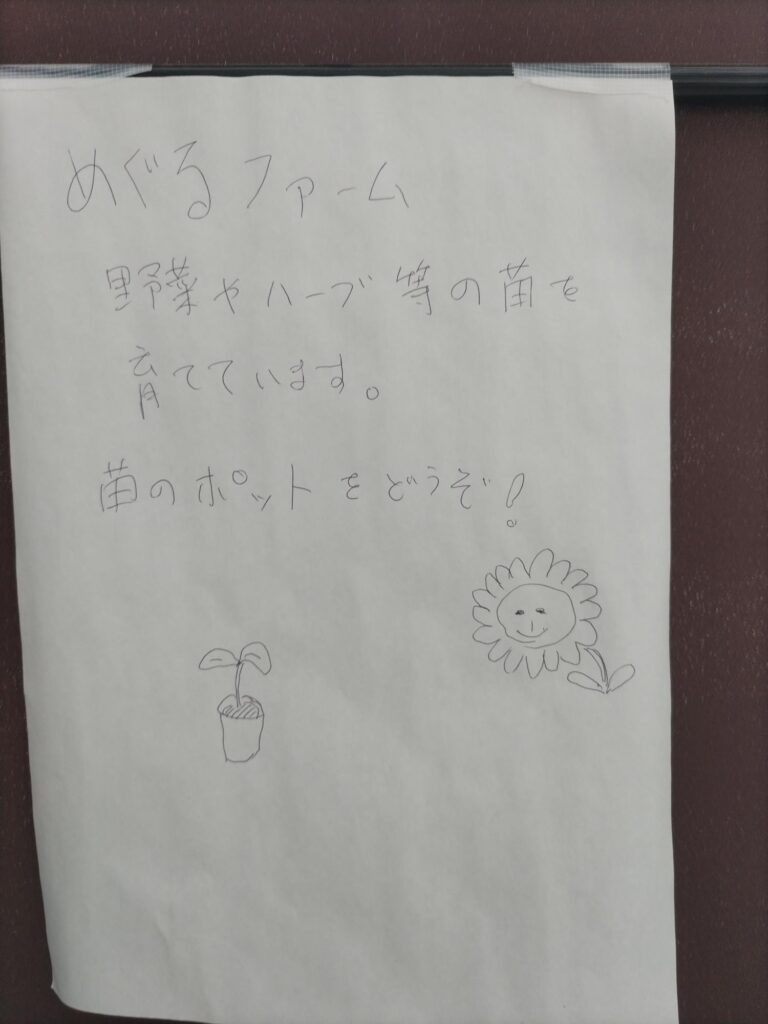 めぐるファーム
野菜やハーブ等の苗を
育てています。
苗のポットをどうぞ!